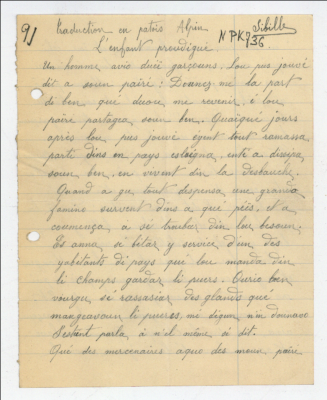 91 traduction en patois Alpin Sibille
NPK 756
L'enfant proudigué
Un homme avio dues garçouns. Lou pus jouvé
dit à soun pairé : Dounez-me la part
de ben, que deoure me revenir, e lou
pairé partagea soun ben. Quauqué jours
après lou pus jouvé ayent tout ramassa
parti dins un pays estrigna, enté a dissipa
soun ben, en vivent din la desbauche.
Quand a gu tout dispensa une grando
famino survent dins a qué péis, et a
coumença à si trubar din lou besoun.
Es anna si bétar y service d'un des
habitants di pays qué lou manda din
li champs gardar li puercs. Ourié ben
vourgu si rassasiar des glands qué
mangeavoun li puercs, mé digun n'in dounavo
S'estent parla à n'el mémé, si dit.
Qué des mercenaires aque des moun pairé